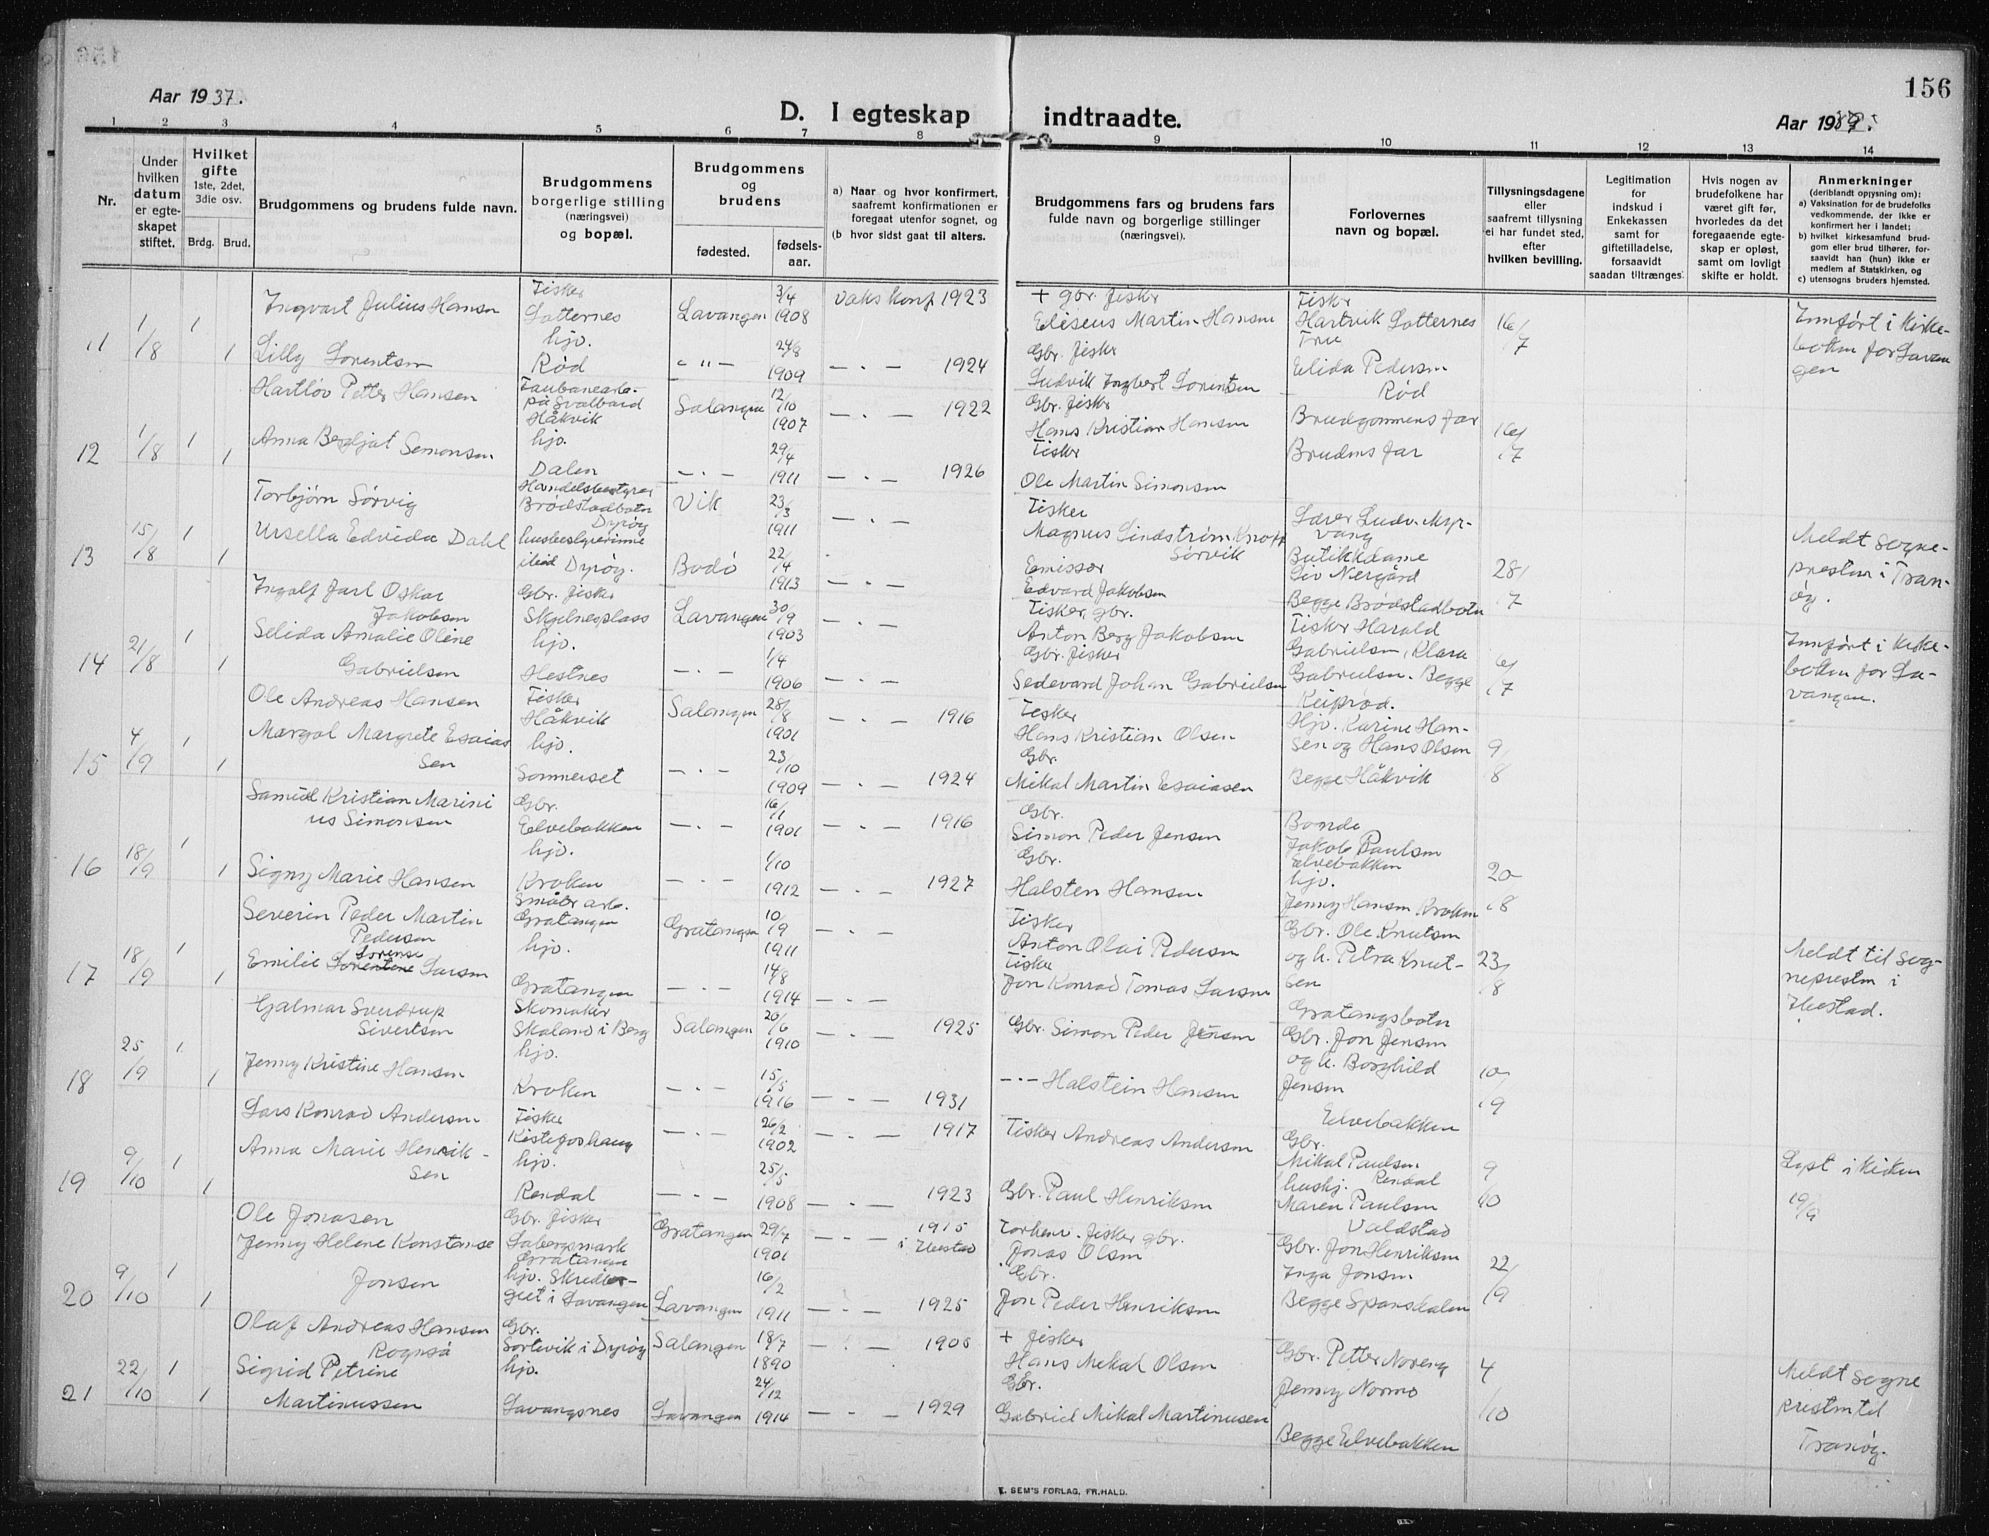 156
Aar 1937.
D. I egteskap indtraadte.
Aar 19
1 2 3 4 5 6 7 8 9 10 11 12 13 14
Nr.
Under hvilken datum er egte-skapet stiftet.
Hvilket gifte 1ste, 2det, 3die osv.
Brdg. Brud.
Brudgommens og brudens fulde navn.
Brudgommens borgerlige stilling (næringsvei) og bopæl.
Brudgommens og brudens
fødested.
fødsels-aar.
a) Naar og hvor konfirmert, saafremt konfirmationen er foregaat utenfor sognet, og
(b hvor sidst gaat til alters.
Brudgommens fars og brudens fars fulde navn og borgerlige stillinger (næringsvei).
Forlovernes navn og bopæl.
Tillysningsdagene eller saafremt tillysning ei har fundet sted, efter hvilken bevilling.
Legitimation for indskud i Enkekassen samt for giftetilladelse, forsaavidt saadan tiltrænges.
Hvis nogen av brudefolkene har været gift før, hvorledes da det foregaaende egte-skap er opløst, samt om lovligt skifte er holdt.
Anmerkninger
(deriblandt opysning om):
a) Vaksination for de brudefolks vedkommende, der ikke er konfirmert her i landet;
b) hvilket kirkesamfund brud-gom eller brud tilhører, for-saavidt han (hun) ikke er medlem af Statskirken, og
c) utensogns bruders hjemsted.
11 1/8 1 Ingvart Julius Hansen Fisker Løtternes Lavangen 3/4 1908 vaks konf 1923 + gbr. fisker Eliseus Martin Hansen Fisker Hartvik Løtternes 16/7 Innført i Kirke-
1 Lilly Lorentsen hjv. Rød - " - 24/8 1909 - " - 1924 Gbr. fisker Ludvik Ingbert Lorentsen Fru Elida Pedersen Rød boken for Lavan gen
12 1/8 1 Hartlov Petter Hansen Taubanearb. på Svalbard Håkvik Salangen 12/10 1907 - " - 1922 Gbr. fisker Hans Kristian Hansen Brudgommens far 16/7
1 Anna Bergljot Simonsen hjv. Dalen - " - 29/4 1911 - " - 1926 Fisker Ole Martin Simonsen Brudens far
13 15/8 1 Torbjørn Sørvig Handelsbestyrer Brødstadbotn Dyrøy Vik 23/3 1911 - " - Fisker Magnus Lindstrøm Sørvik Lærer Ludv. Myr-vang 28/7 Meldt sogne-
1 Ursella Edvida Dahl husbestyrerinne Dyrøy. Bodø 22/4 1913 Emissær Edvard Jakobsen Butikkdame Liv Nergård Begge Brødstadbotn presten i Tran-øy.
14 21/8 1 Ingolf Jarl Oskar Jakobsen Gbr. fisker Skjelnesplass Lavangen 30/9 1903 - " - Fisker, gbr. Anton Berg Jakobsen Fisker Harald Gabrielsen, Klara 6/7 Innført i Kirke-
1 Selida Amalie Oline Gabrielsen hjv. Hestnes - " - 1/4 1906 - " - Gbr. fisker Sedevard Johan Gabrielsen Gabrielsen. Begge boken for La-vangen.
15 4/9 1 Ole Andreas Hansen Fisker Håkvik Salangen 28/8 1901 - " - 1916 Fisker Hans Kristian Olsen Hjv. Karine Han-sen og Hans Olsen 9/8
1 Margot Margrete Esaias sen hjv. Sommerset - " - 23/10 1909 - " - 1924 Gbr. Mikal Martin Esaiasen Begge Håkvik
16 18/9 1 Samuel Kristian Marini us Simonsen Gbr. Elvebakken - " - 16/1 1901 - " - 1916 Gbr. Simon Peder Jensen Bonde Jakob Paulsen Elvebakken 20/8
1 Signy Marie Hansen hjv. Kroken - " - 1/10 1912 - " - 1927 Gbr. Halsten Hansen hjv. Jenny Hansen Kroken
17 18/9 1 Severin Peder Martin Pedersen Småbr arb. Gratangen Gratangen 10/9 1911 - " - Fisker Anton Olai Pedersen Gbr. Ole Knutsen 23/8 Meldt til sog-
1 Emilie Lorense Larsen hjv. Gratangen - " - 14/8 1914 - " - Fisker Jon Konrad Tomas Larsen og h. Petra Knut-sen Gratangsbotn nepresten i Ibestad.
18 25/9 1 Hjalmar Sverdrup Sivertsen Skomaker Skaland i Berg Salangen 20/6 1910 - " - 1925 Gbr. Simon Peder Jensen Gbr. Jon Jensen 10/9
1 Jenny Kristine Hansen hjv. Kroken - " - 15/5 1916 - " - 1931 - " - Halstein Hansen og h. Borghild Jensen Elvebakken
19 9/10 1 Lars Konrad Andersen Fisker Kistefoshaug - " - 26/2 1902 - " - 1917 Fisker Andreas Andersen Gbr. Mikal Paulsen Rendal 9/10 Lyst i kirken
1 Anna Marie Henrik-sen hjv. Rendal - " - 25/5 1908 - " - 1923 Gbr. Paul Henriksen hushj. Maren Paulsen Valdstad 19/9
20 9/10 1 Ole Jonasen Gbr. fisker Labergsmark Gratangen Gratangen 29/7 1901 - " - 1915 i Ibestad Forhenv. fisker gbr. Jonas Olsen Gbr. Jon Henriksen 22/9
1 Jenny Helene Konstanse Jonsen hjv. Lavangen Lavangen 16/2 1911 - " - 1925 Gbr. Jon Peder Henriksen Inga Jonsen Begge Spansdalen
21 22/10 1 Olaf Andreas Hansen Rognså Gbr. Sørlevik i Dyrøy Salangen 18/7 1890 - " - + fisker Hans Mekal Olsen Gbr. Petter Noreng 4/10 Meldt sogne
1 Sigrid Petrine Martinussen hjv. Lavangsnes Lavangen 24/12 1914 - " - 1929 Gbr. Gabriel Mikal Martinusen Jenny Normo Begge Elvebakken presten til Tranøy.
E. SEM'S FORLAG, FR.HALD.